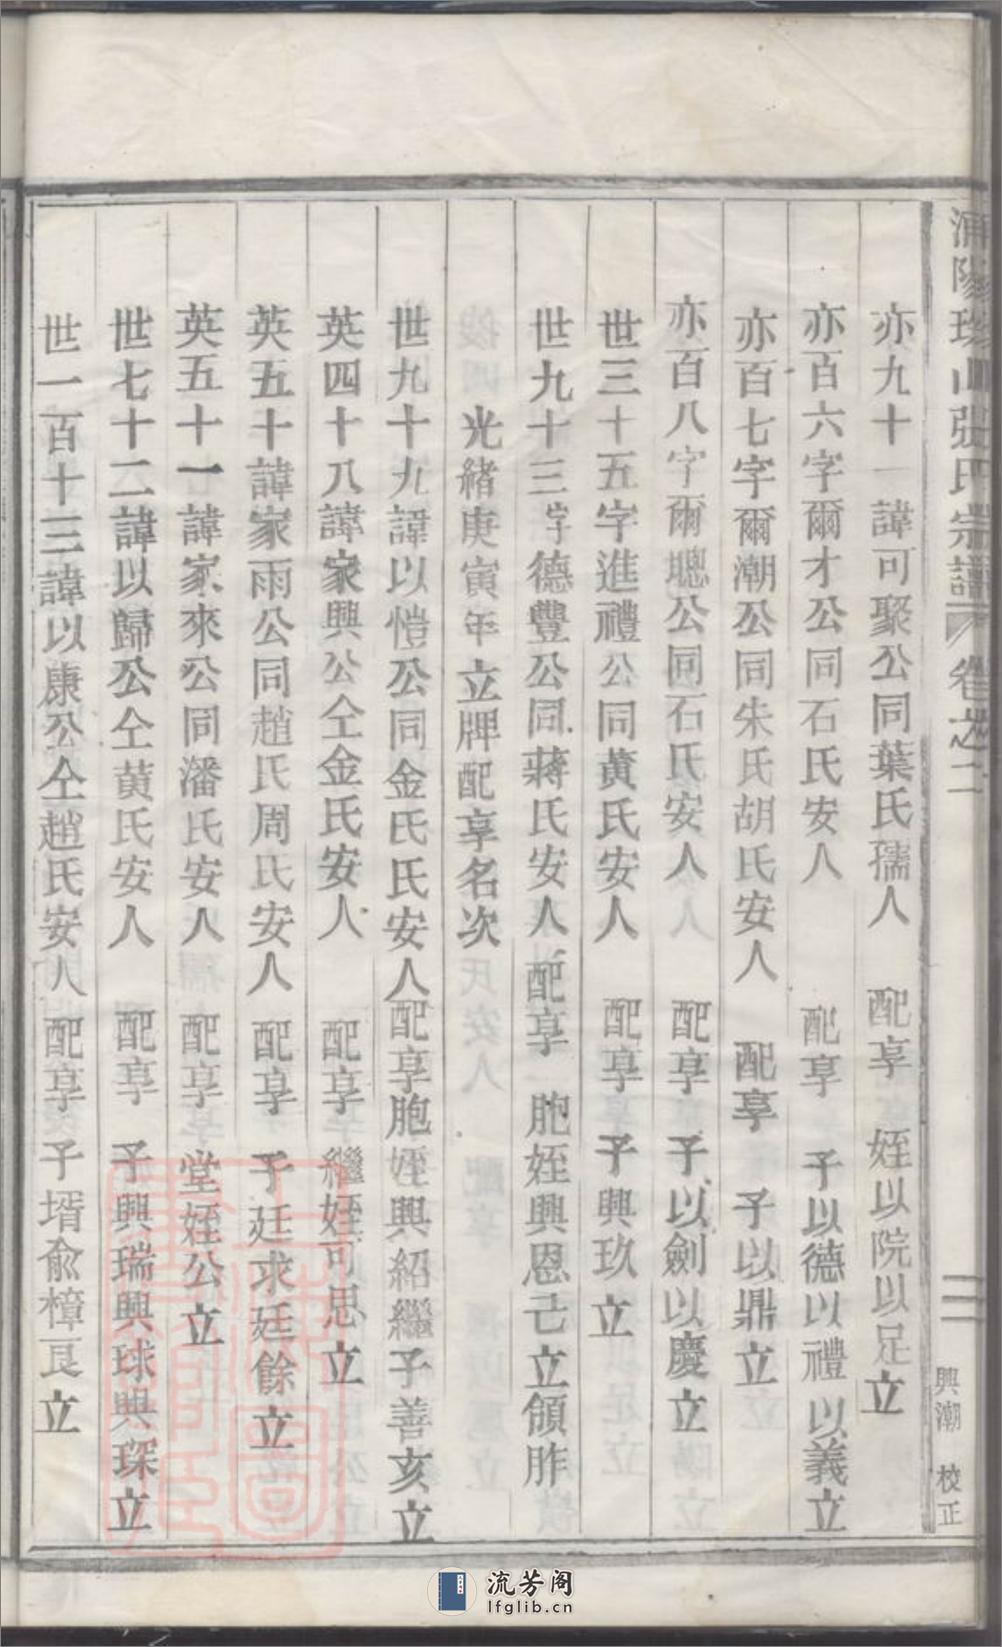 浦陽珓山張氏宗譜 卷之二 二 興潮 校正
亦九十一諱可聚公同葉氏孺人 配享 姪以院以足立
亦百六字爾才公同石氏安人 配享 子以德以禮以義立
亦百七字爾潮公同朱氏胡氏安人 配享 子以鼎立
亦百八字爾聰公同石氏安人 配享 子以劍以慶立
世三十五字進禮公同黃氏安人 配享 子興玖立
世九十三字德豐公同蔣氏安人 配享 胞姪興恩己立頒胙
光緒庚寅年立牌配享名次
世九十九諱以愷公同金氏氏安人配享胞姪興紹繼子善亥立
英四十八諱家興公仝金氏安人 配享 繼姪可思立
英五十諱家雨公同趙氏周氏安人 配享 子廷求廷餘立
英五十一諱家來公同潘氏安人 配享 堂姪公立
世七十二諱以歸公仝黃氏安人 配享 子興瑞興球興琛立
世一百十三諱以康公仝趙氏安人 配享 子壻兪樟良立
流芳阁
lfglib.cn